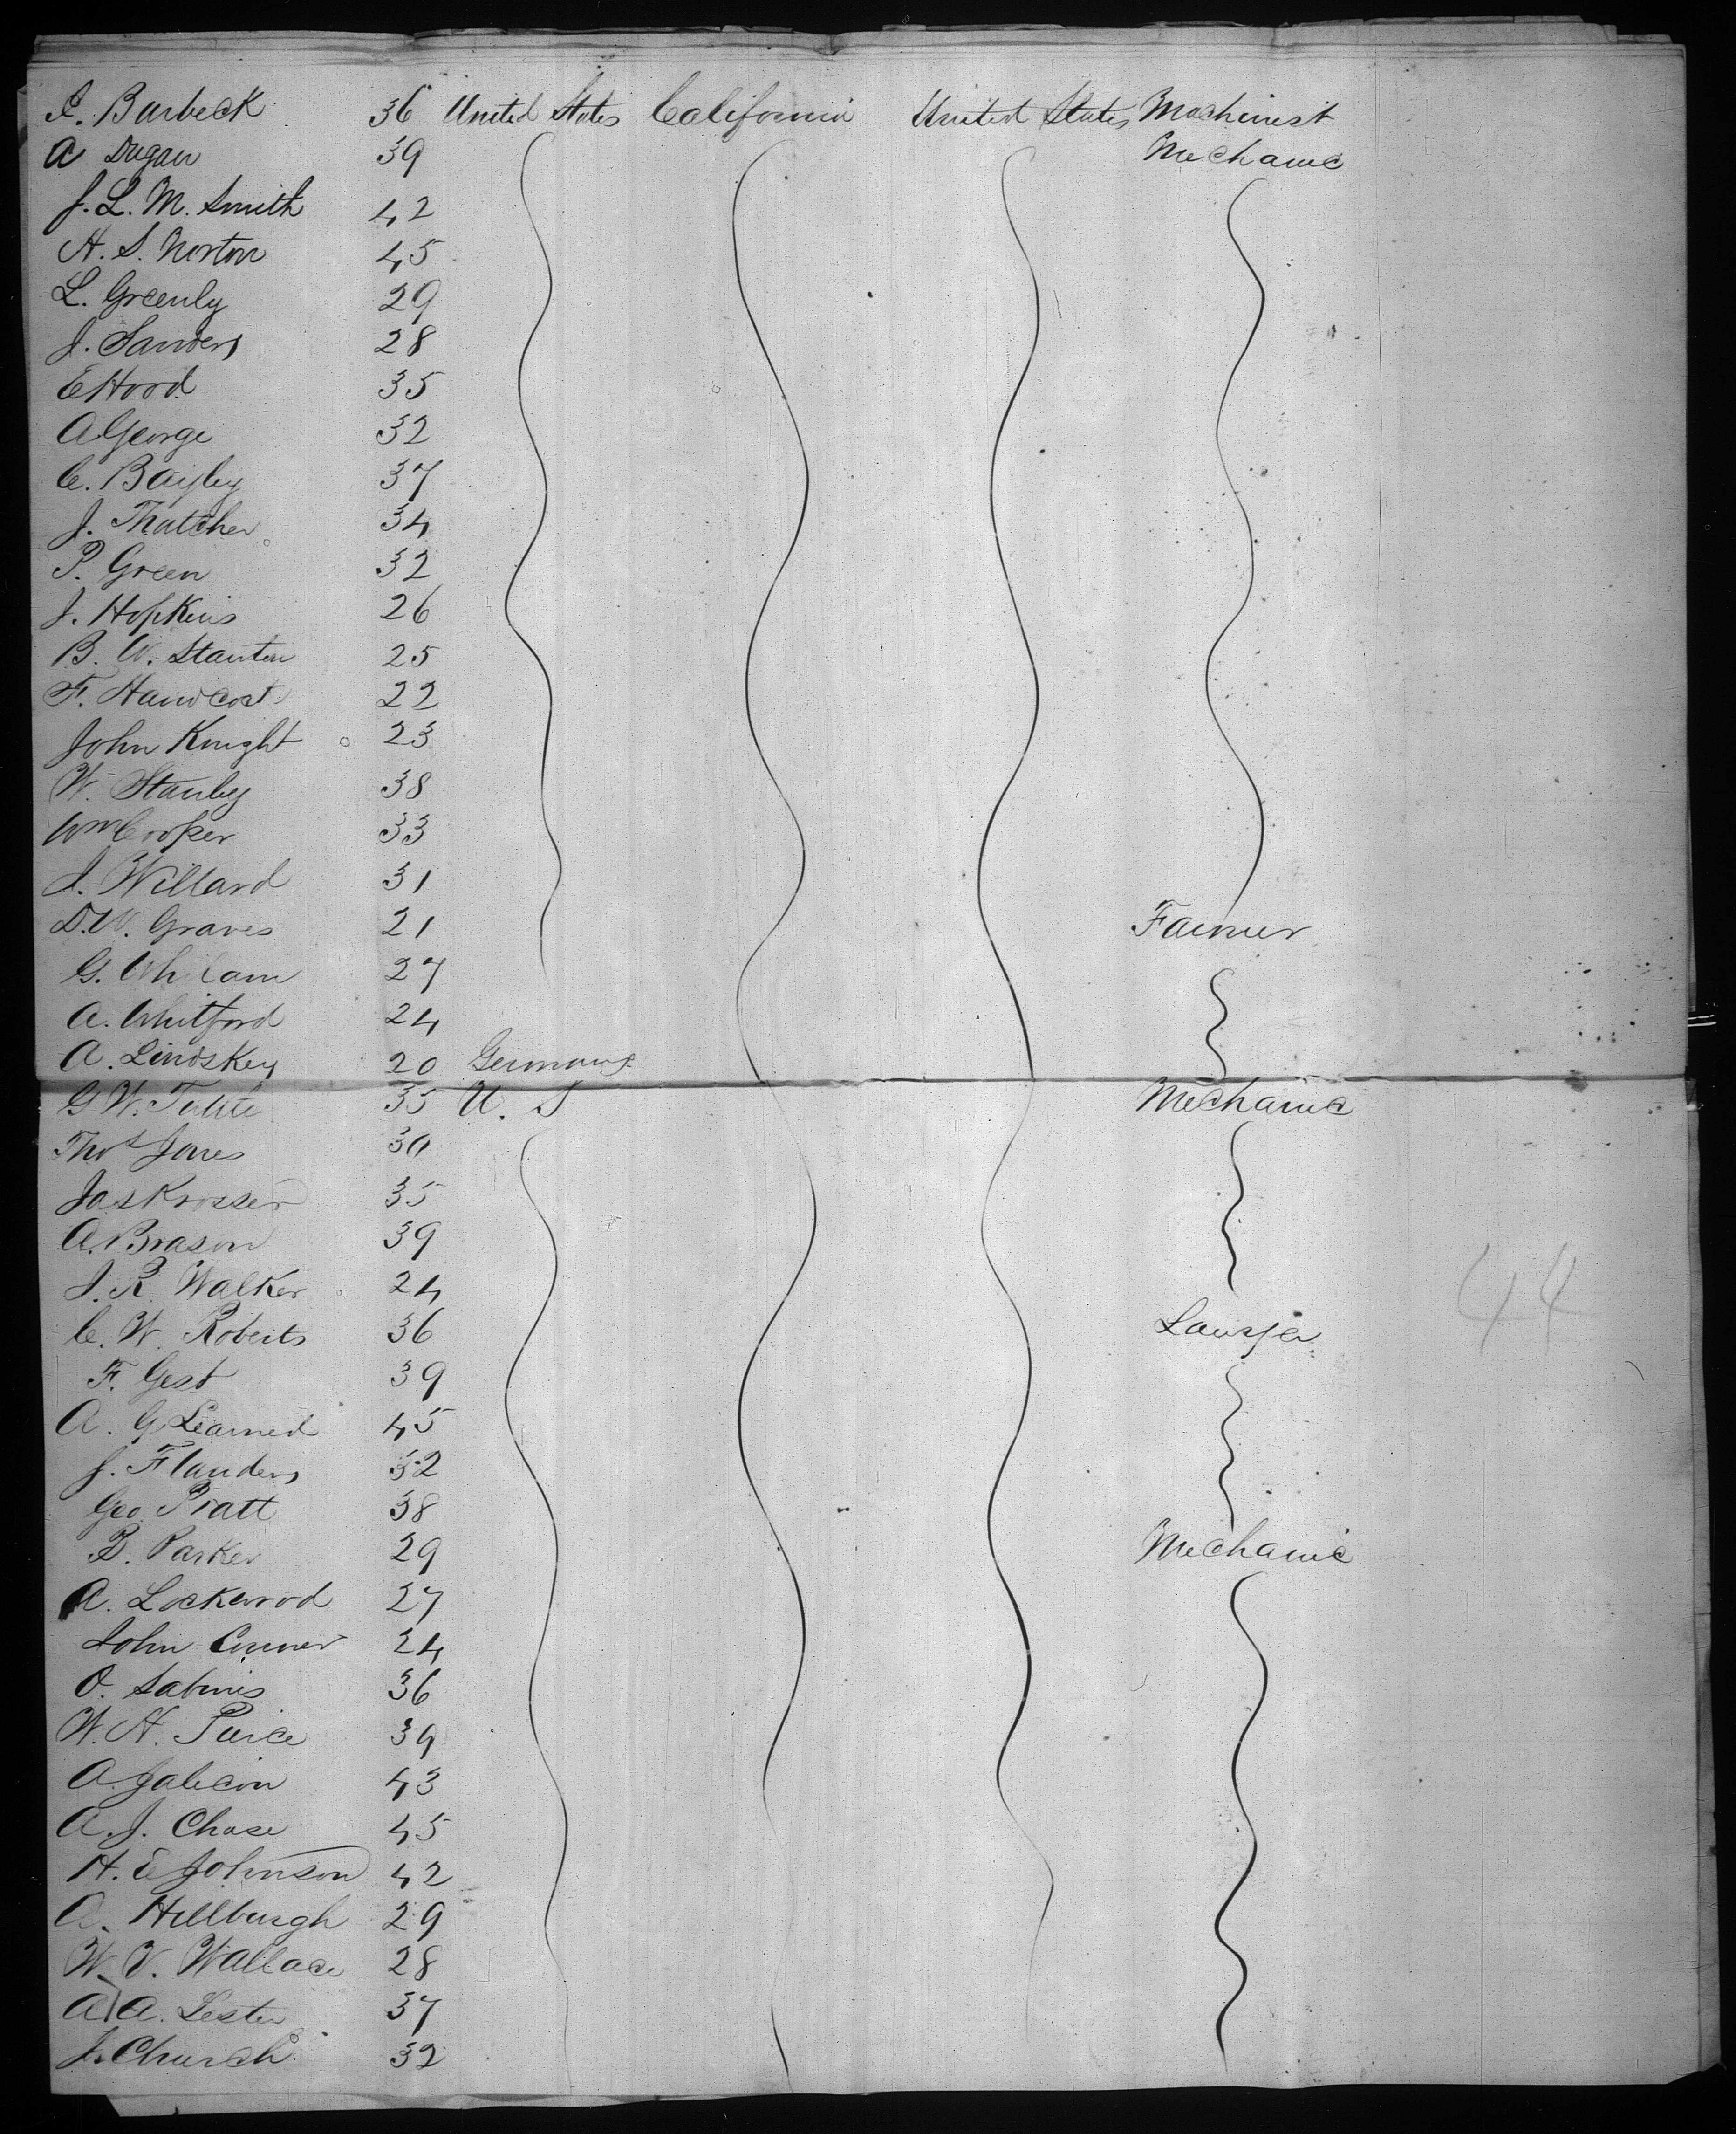 J. Burbeck 36 United States California United States Machinist
A Dugan 39 Mechanic
J. L. M. Smith 42
H. S. Norton 45
L. Greenly 29
J. Sanders 28
E Hood 35
A George 32
C. Bayley 37
J. Thatcher 34
P. Green 32
J. Hopkins 26
B. W. Stanton 25
F. Handcost 22
John Knight 23
W. Stanley 38
Wm Cooper 33
J. Willard 31
D. W. Graves 21 Farmer
G. Whilam 27
A. Whitford 24
A. Lindskey 20 Germany
G W. Tuttle 35 U. S Mechanic
Thos Jones 30
Jas Krosser 35
A. Brason 39
J. R. Walker 24
C. W. Roberts 36 Lawyer
F. Gest 39
A. G Learned 45
J. Flanders 32
Geo. Pratt 38
B. Parker 29 Mechanic
A. Lockwood 27
John Conner 24
O. Sabinis 36
W. H. Peirce 39
A. 43
A. J. Chase 45
H. E Johnson 42
A. Hillburgh 29
W. V. Wallace 28
A. A. Lester 37
J. Church 32
44